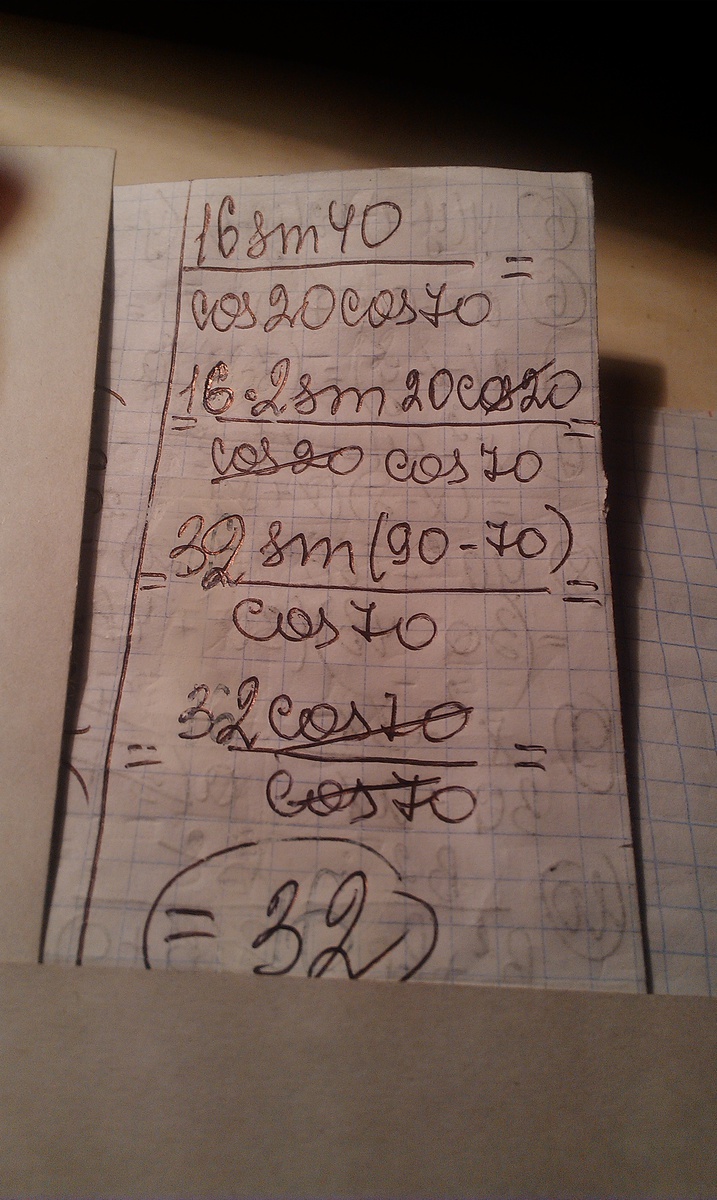 16 sin 40
=
cos 20 cos 70
= 16·2 sin 20 cos 20 =
cos 20 cos 70
= 32 sin (90-70) =
cos 70
= 32 cos 70 =
cos 70
= 32